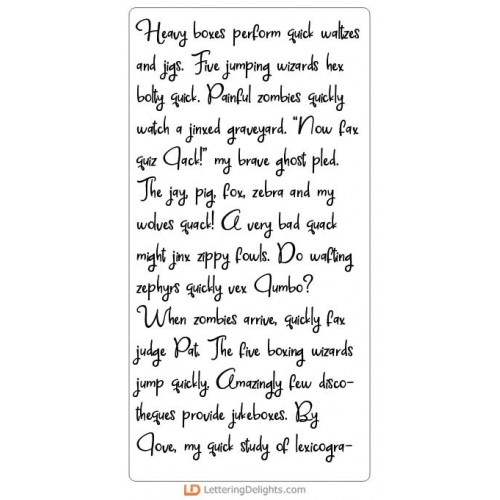 Heavy boxes perform quick waltzes
and jigs. Five jumping wizards hex
bolty quick. Painful zombies quickly
watch a jinxed graveyard. "Now fax
quiz Jack!" my brave ghost pled.
The jay, pig, fox, zebra and my
wolves quack! A very bad quack
might jinx zippy fowls. Do wafting
zephyrs quickly vex Jumbo?
When zombies arrive, quickly fax
judge Pat. The five boxing wizards
jump quickly. Amazingly few disco-
theques provide jukeboxes. By
Jove, my quick study of lexicogra-
LD LetteringDelights.com